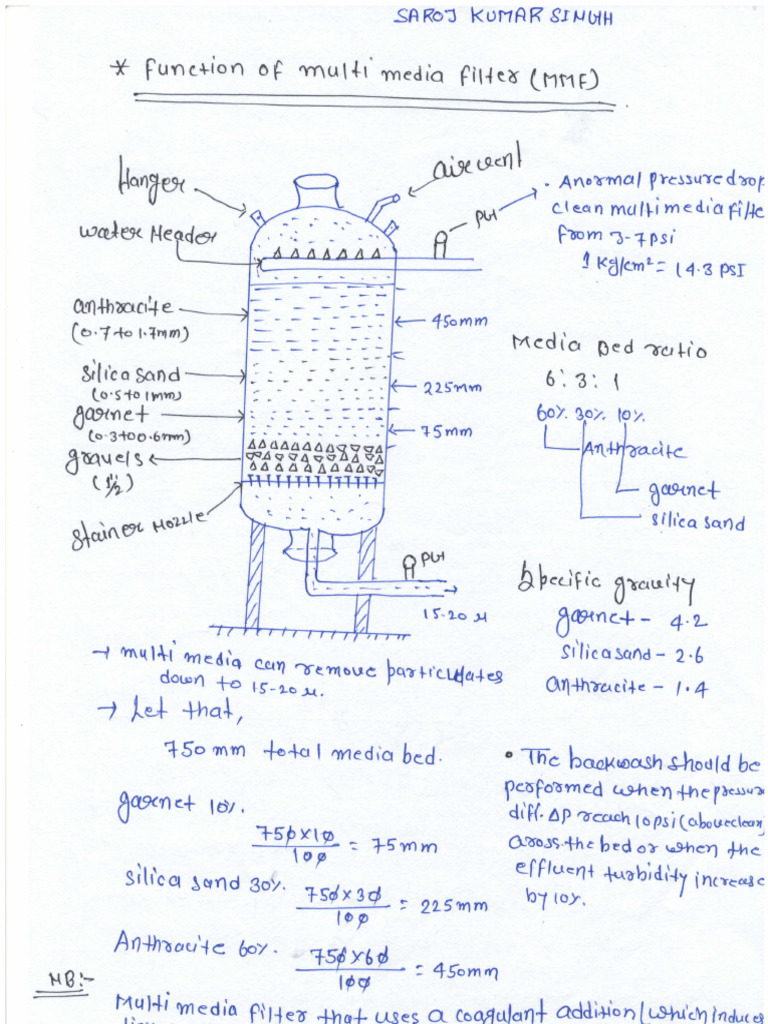 SAROJ KUMAR SINGH
* Function of multi media filter (MMF)
Hanger
air vent
water Header
PG1
• A normal pressure drop
clean multimedia filte
from 3-7 psi
1 Kg/cm² = 14.3 PSI
anthracite
(0.7 to 1.7mm)
450mm
silica sand
(0.5 to 1mm)
225mm
garnet
(0.3 to 0.6mm)
75mm
gravels
(1"/2)
Stainer Nozzle
PG1
15-20 µ
Media Bed ratio
6 : 3 : 1
60% 30% 10%
Anthracite
garnet
silica sand
Specific gravity
garnet - 4.2
silica sand - 2.6
anthracite - 1.4
→ multi media can remove particulates
down to 15-20 µ.
→ Let that,
750 mm total media bed.
garnet 10%.
750 x 10
100
= 75 mm
silica sand 30%.
750 x 30
100
= 225 mm
Anthracite 60%.
750 x 60
100
= 450mm
• The backwash should be
performed when the pressur
diff. ΔP reach 10 psi (above clean)
aross the bed or when the
effluent turbidity increase
by 10%.
NB:-
Multi media filter that uses a coagulant addition (which induces